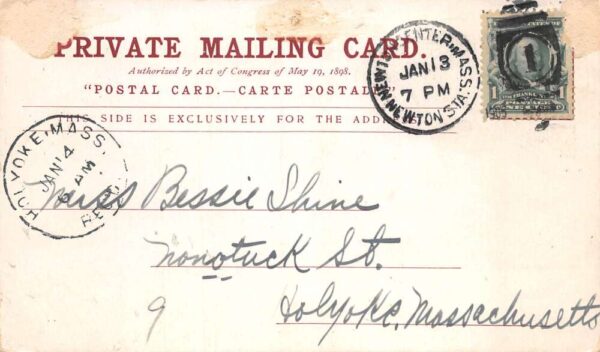 PRIVATE MAILING CARD.
Authorized by Act of Congress of May 19, 1898.
"POSTAL CARD.—CARTE POSTALE
THIS SIDE IS EXCLUSIVELY FOR THE ADDRE
CENTER, MASS.
JAN 13
7 PM
NEWTON STA.
1
1
POSTAGE
HOLYOKE, MASS.
JAN 14
AM
REC'D
Miss Bessie Shine
Nonotuck St.
9
Holyoke, Massachusetts